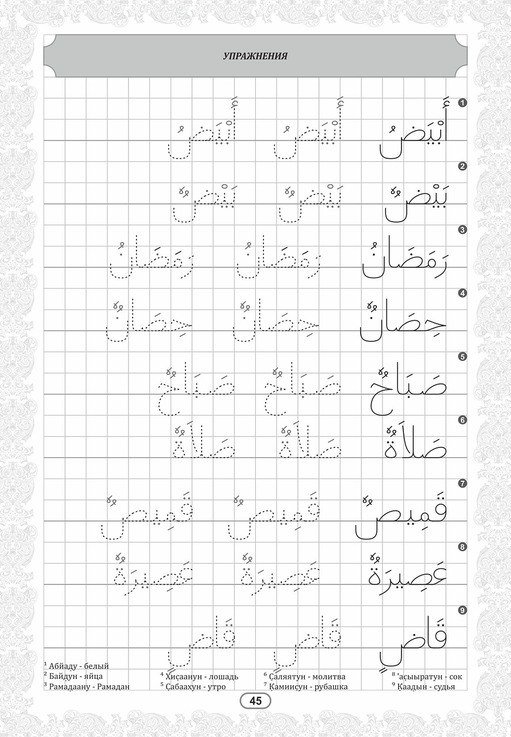 УПРАЖНЕНИЯ
1
أَبْيَضُ أَبْيَضُ أَبْيَضُ
2
بَيْضٌ بَيْضٌ بَيْضٌ
3
رَمَضَانُ رَمَضَانُ رَمَضَانُ
4
حِصَانٌ حِصَانٌ حِصَانٌ
5
صَبَاحٌ صَبَاحٌ صَبَاحٌ
6
صَلاَةٌ صَلاَةٌ صَلاَةٌ
7
قَمِيصٌ قَمِيصٌ قَمِيصٌ
8
عَصِيرَةٌ عَصِيرَةٌ عَصِيرَةٌ
9
قَاضٍ قَاضٍ قَاضٍ
1 Абйаду - белый
2 Байдун - яйца
3 Рамадаану - Рамадан
4 Хисаанун - лошадь
5 Сабаахун - утро
6 Саляятун - молитва
7 Камиисун - рубашка
8 'асыыратун - сок
9 Каадын - судья
45